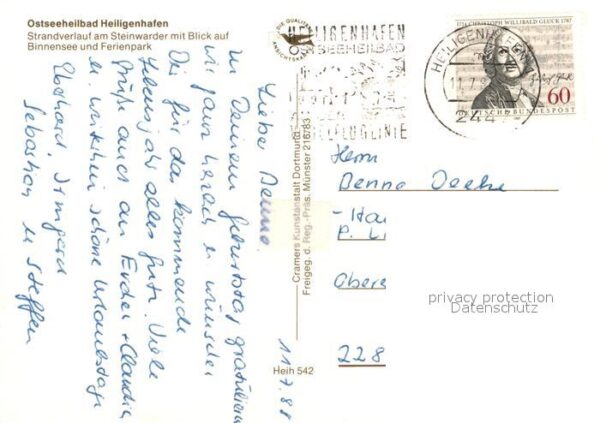 Ostseeheilbad Heiligenhafen
Strandverlauf am Steinwarder mit Blick auf
Binnensee und Ferienpark
Liebe Benno.
zu Deinem Geburtstag gratulieren
wir ganz herzlich u. wünschen
Dir für das kommende
Lebensjahr alles Gute. Viele
Grüße auch an + Claudia
u. weiterhin schöne Urlaubstage
Eberhard, Irmgard
Sebastian u. Steffen
11.7.88
DIE QUALITÄTS
ANSICHTSKARTE
Cramers Kunstanstalt Dortmund
Freigeg. d. Reg.-Präs. Münster 216/83
Heih 542
HEILIGENHAFEN
OSTSEEHEILBAD
VOGELFLUGLINIE
HEILIGENHAFEN
11.7.
244
1714 CHRISTOPH WILLIBALD GLUCK 1787
60
DEUTSCHE BUNDESPOST
Herrn
Benno
Obere
228
privacy protection
Datenschutz